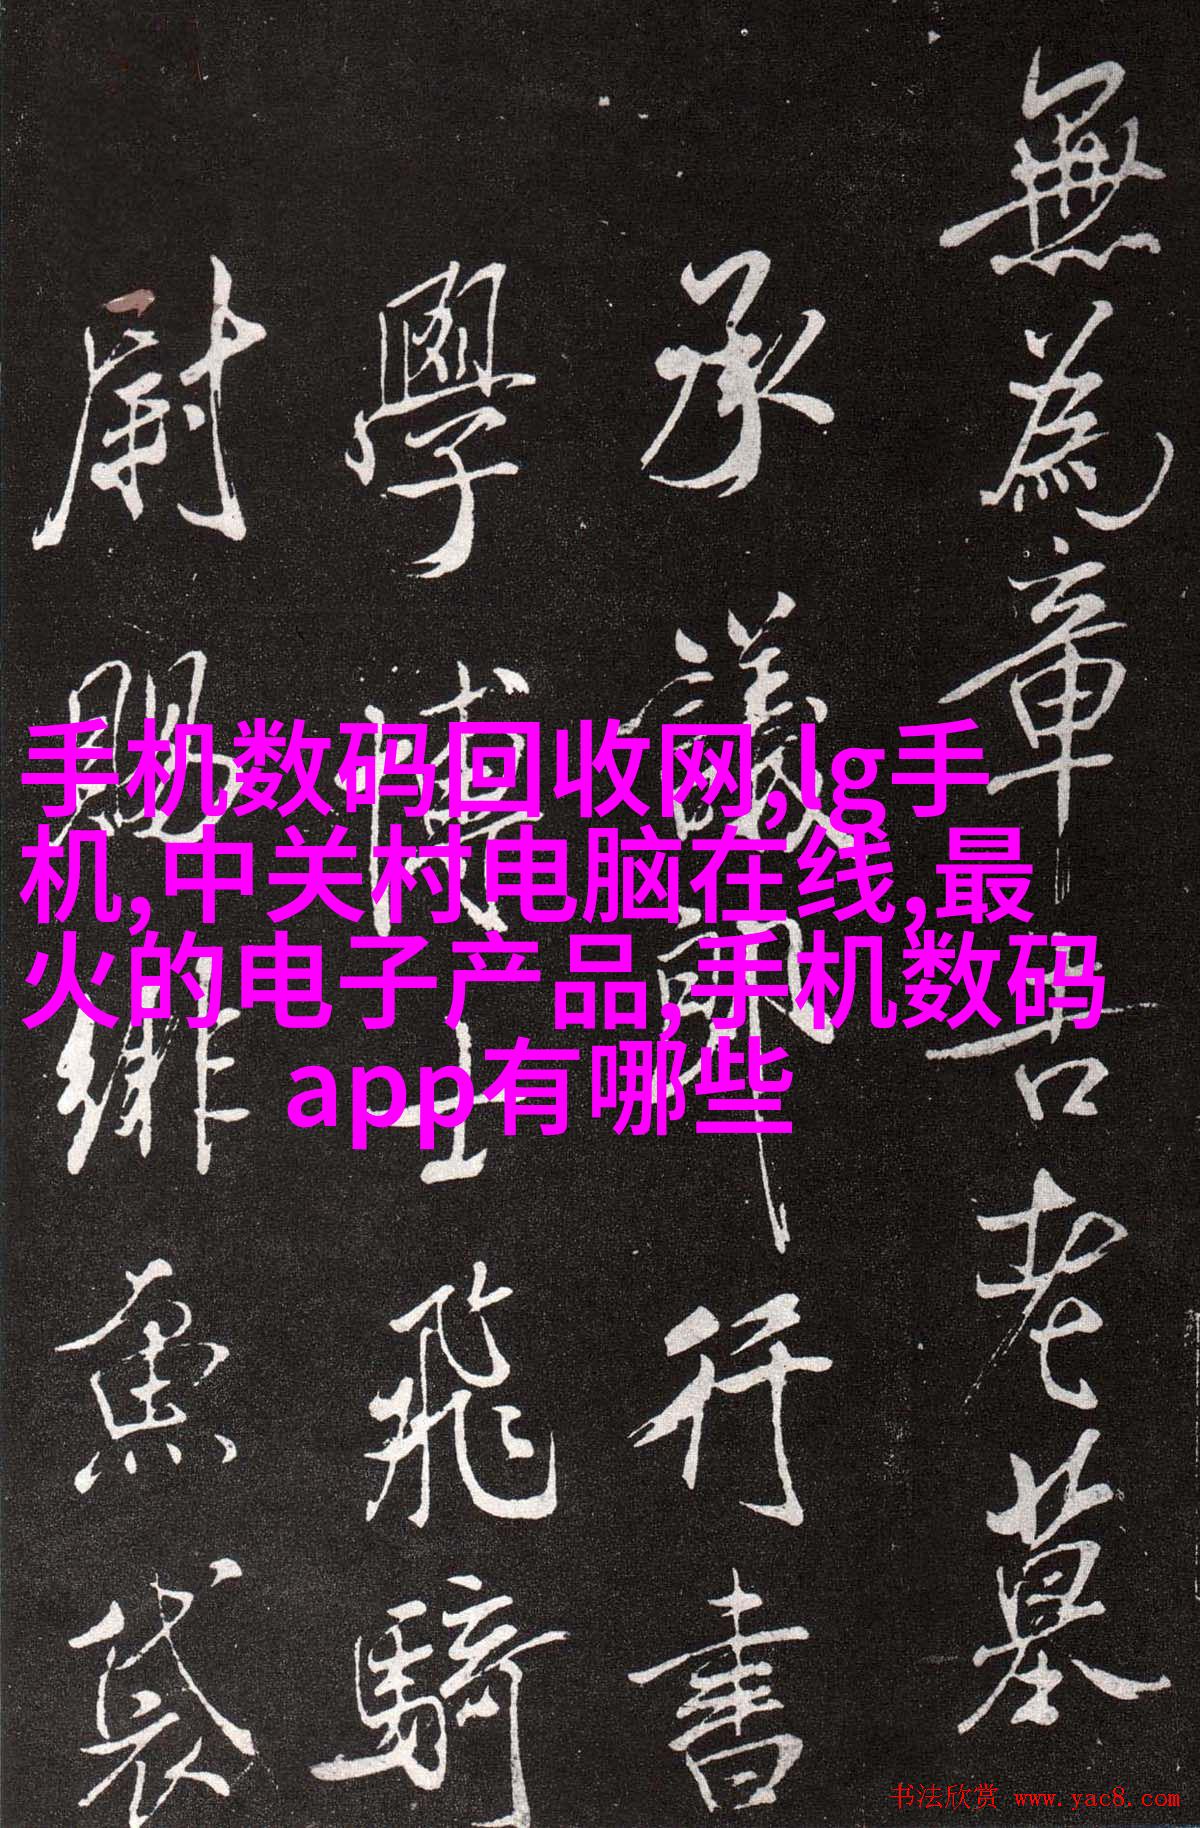 無為章吉老墓
承議郎行書
學博士飛騎
尉賜緋魚袋
手机数码回收网,lg手
机,中关村电脑在线,最
火的电子产品,手机数码
app有哪些
书法欣赏 www.yac8.com